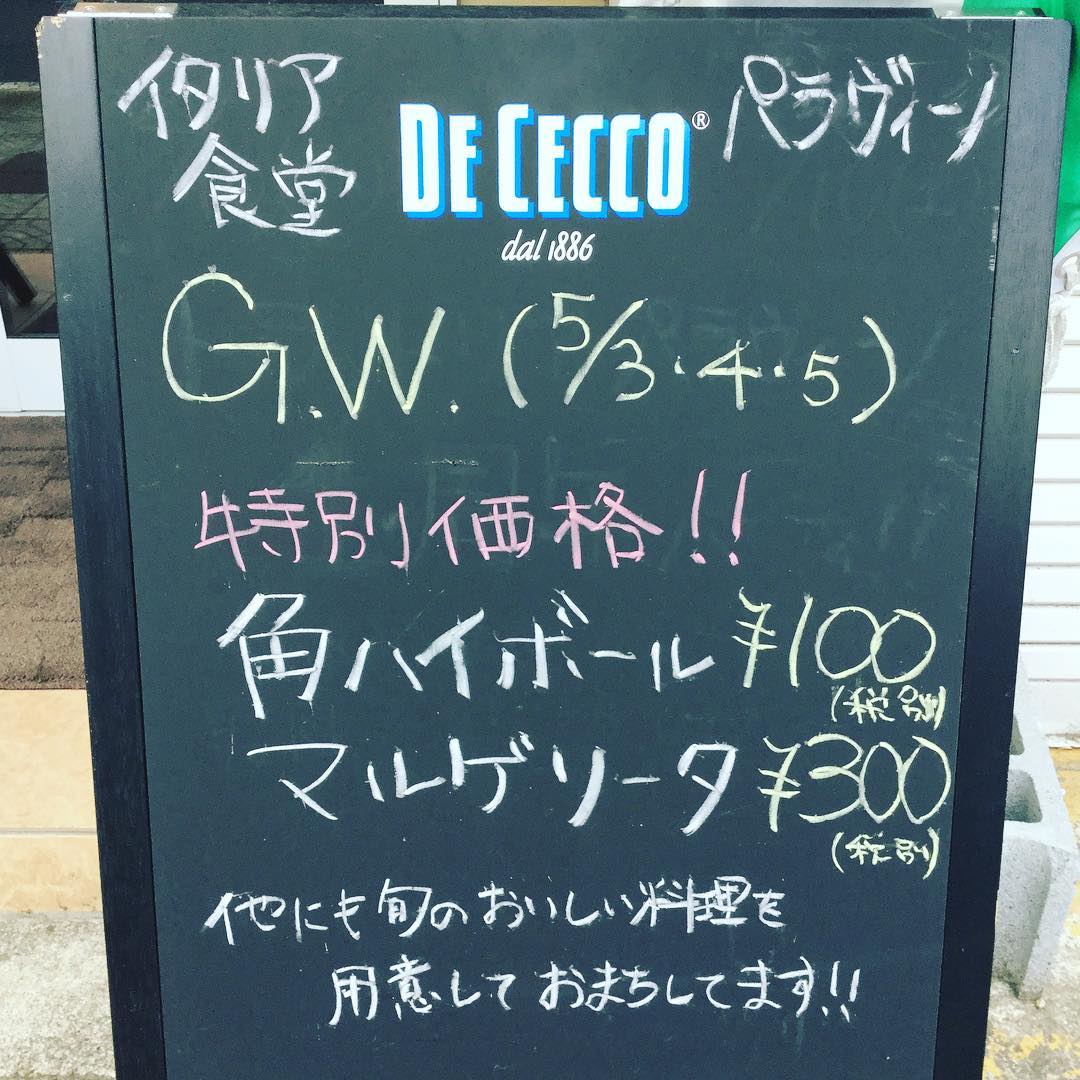 イタリア
食堂
DE CECCO®
dal 1886
パラヴィーノ
G.W. (5/3・4・5)
特別価格!!
角ハイボール ¥100
(税別)
マルゲリータ ¥300
(税別)
他にも旬のおいしい料理を
用意しておまちしてます!!